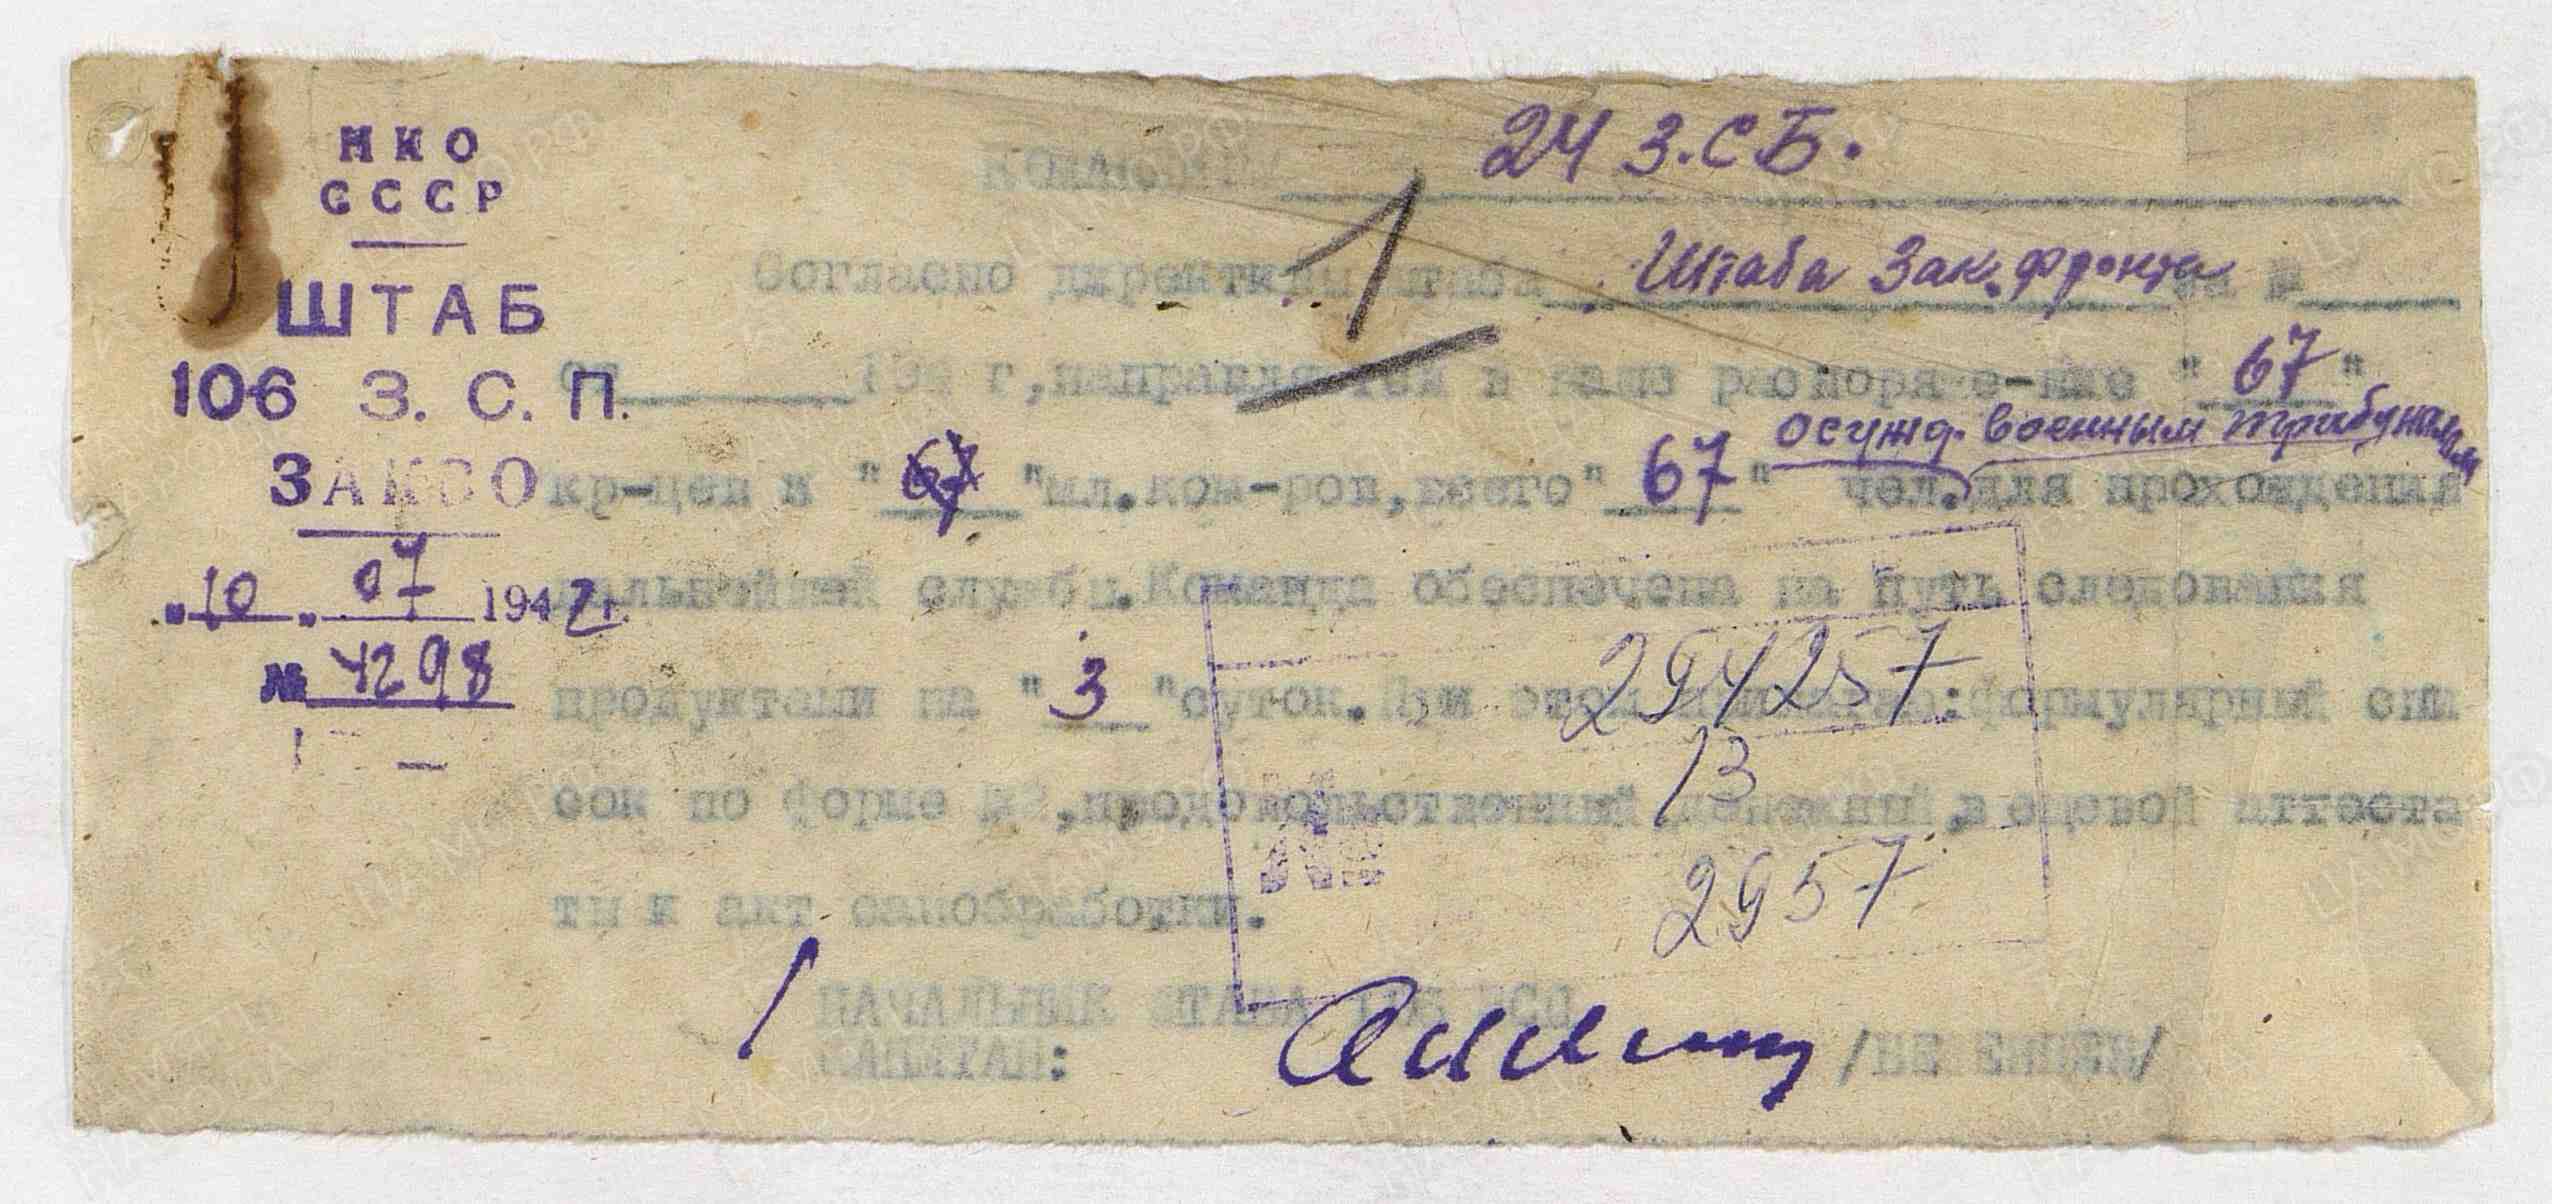 НКО
СССР
ШТАБ
106 З. С. П.
ЗАКВО
"10" 07 1942 г.
№ 4298
24 З.СБ.
Согласно директивы штаба Штаба Зак. фронта за №
от 194 г, направляются в ваше "67"
осужд. военным трибуналом
кр-цев и "67" мл.ком-ров, всего "67" чел. для прохождения
дальнейшей службы. Команда обеспечена на путь следования
продуктами на "3" суток. При этом : формулярный спи
сок по форме , продовольственный , вещевой аттеста
ты и акт санобработки.
294257
13
2957
НАЧАЛЬНИК ШТАБА 106 ЗСП
КАПИТАН: